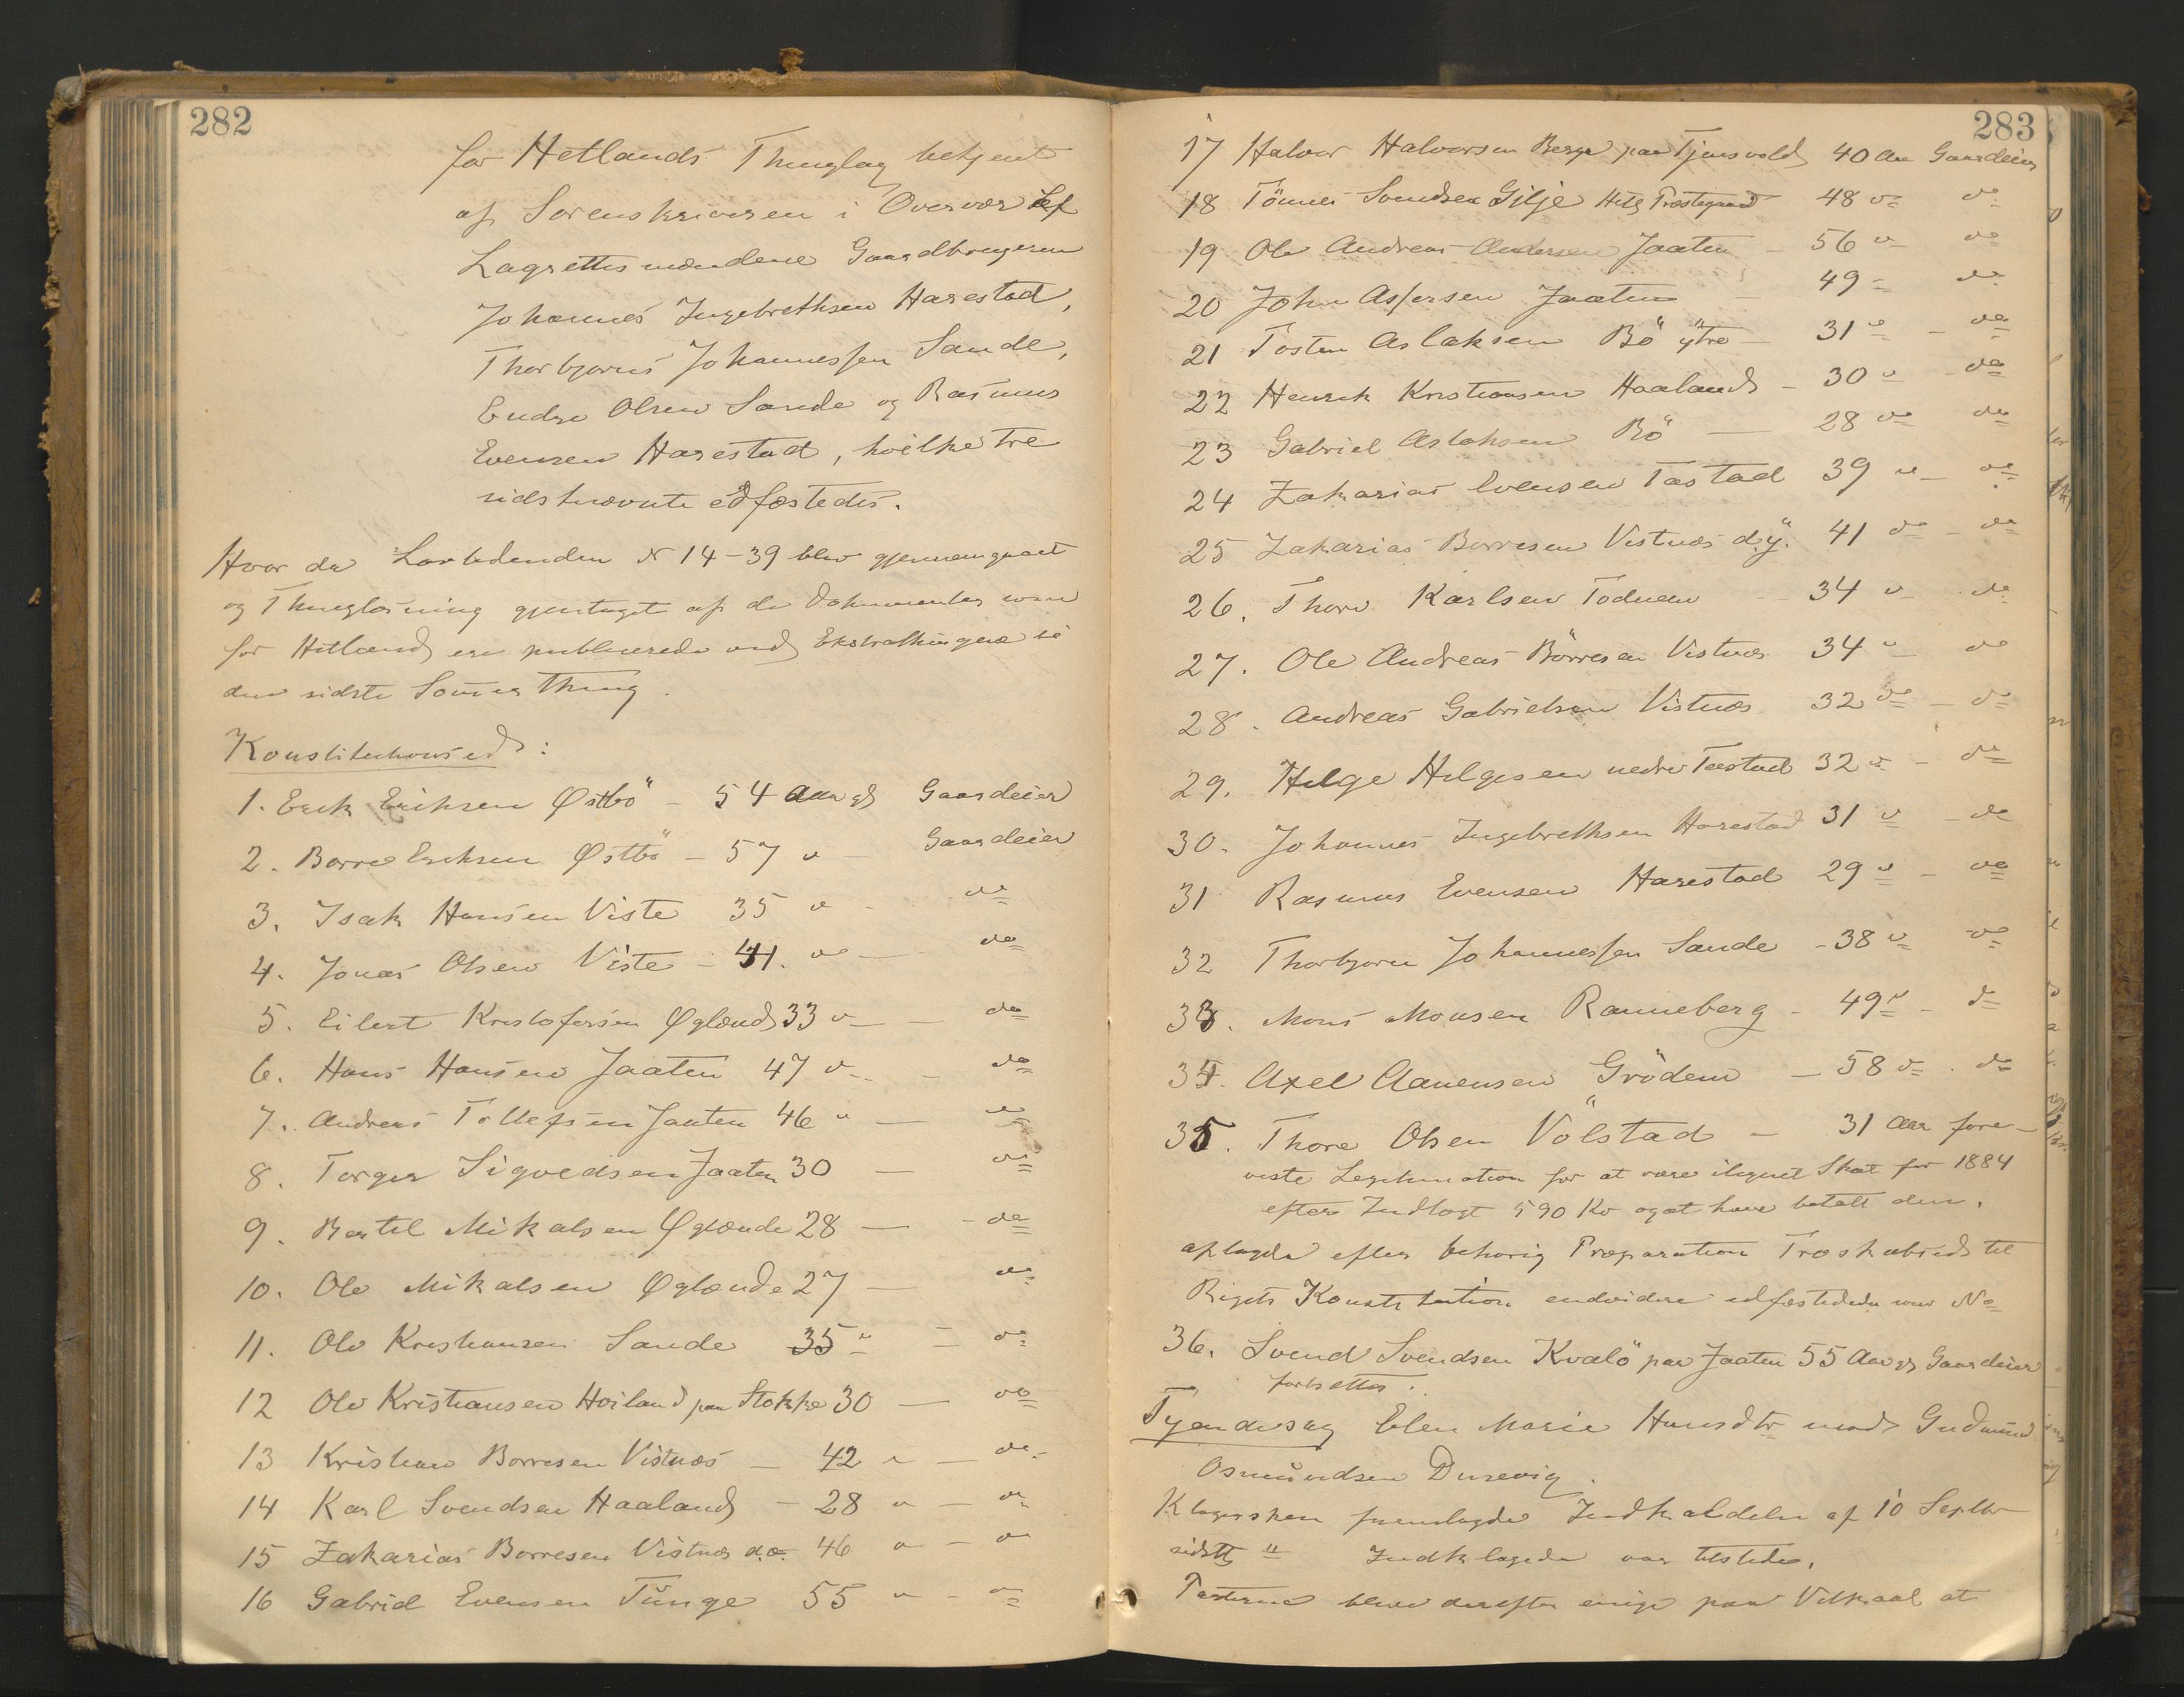 282
for Hetlands Thinglag betjent
af Sorenskriveren i Overvær af
Lagrettesmændene Gaardbrugeren
Johannes Ingebrethsen Harestad,
Thorbjørns Johannessen Sande,
Endre Olsen Sande og Rasmus
Evensen Harestad, hvilke tre
sidstnævnte edfæstedes.
Hvor da Løbedenden N 14-39 blev gjennemgaaet
og Thinglæsning gjentaget af de Dokumenter som
for Hetland ere publicerede ved Ekstrathingene
den sidste Sommerthing.
Konstitutionsed:
1. Erik Eriksen Østbö - 54 Aar gl Gaardeier
2. Børre Eriksen Østbö - 57 " - Gaardeier
3. Isak Hansen Viste 35 " - do
4. Jonas Olsen Viste - 41. do - do
5. Eilert Kristofersen Øglænd 33 " - do
6. Hans Hansen Jaaten 47 " - do
7. Andreas Tollefsen Jaaten 46 " - do
8. Torger Sigvedsen Jaaten 30 - do
9. Bertel Mikalsen Øglænde 28 - do
10. Ole Mikalsen Øglænde 27 - do
11. Ole Kristiansen Sande 35 " - do
12 Ole Kristiansen Høiland paa Stokke 30 - do
13 Kristian Børresen Vistnæs - 42 " - do
14 Karl Svendsen Haaland - 28 " - do
15 Zakarias Børresen Vistnæs d.æ. 46 " - do
16 Gabriel Evensen Tunge 55 " - do
283
17 Halvor Halvorsen Berge paa Tjensvold 40 Aar Gaardeier
18 Tönnes Svendsen Gilje Hetl Præstegaard 48 do do
19 Ole Andreas Andersen Jaaten - 56 " do
20 John Assersen Jaaten 49 - do
21 Tosten Aslaksen Bö ytre - 31 " - do
22 Henrik Kristiansen Haaland - 30 " - do
23 Gabriel Aslaksen Bö - 28 do do
24 Zakarias Evensen Tastad 39 " - do
25 Zakarias Børresen Vistnæs d.y. 41 do - do
26. Thore Karlsen Todnem - 34 " do
27. Ole Andreas Börresen Vistnæs 34 " do
28. Andreas Gabrielsen Vistnæs 32 do - do
29. Helge Helgesen nedre Tastad 32 " - do
30. Johannes Ingebrethsen Harestad 31 " - do
31 Rasmus Evensen Harestad 29 " - do
32 Thorbjørn Johannessen Sande - 38 " do
33. Mons Monsen Ranneberg - 49 " - do
34. Axel Aanensen Grödem - 58 do. do
35. Thore Olsen Völstad - 31 Aar fore-
viste Legitimation for at være ilignet Skat for 1884
efter Indtægt 590 Kr og at have betalt den.
aflagde efter behørig Præparation Troskabsed til
Rigets Konstitution endvidere edfæstedes som No
36. Svend Svendsen Kvalö paa Jaaten 55 Aar gl Gaardeier
fortsættes.
Tyendesag Elen Marie Hansdtr mod Gudmund
Osmundsen Dusevig.
Klagersken fremlagde Indkaldelse af 10 Septbr
sidstl " Indklagede var tilstede.
Parterne bleve derefter enige paa Vilkaar at